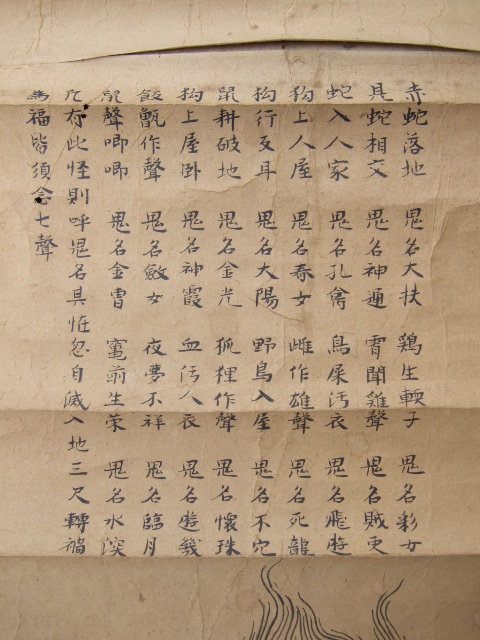 赤蛇落地 鬼名大扶 鶏生軟子 鬼名彩女
見蛇相交 鬼名神通 霄聞雞聲 鬼名賊吏
蛇入人家 鬼名孔禽 鳥屎汚衣 鬼名飛遊
狗上人屋 鬼名春女 雌作雄聲 鬼名死龍
狗行反耳 鬼名大陽 野鳥入屋 鬼名不定
鼠耕破地 鬼名金光 狐狸作聲 鬼名懷珠
狗上屋卧 鬼名神霞 血汚人衣 鬼名遊幾
飯甑作聲 鬼名斂女 夜夢不祥 鬼名臨月
鼠聲唧唧 鬼名金曹 竈前生 鬼名水
凡有此怪則呼鬼名其怪忽自滅入地三尺轉禍
為福皆須念七聲